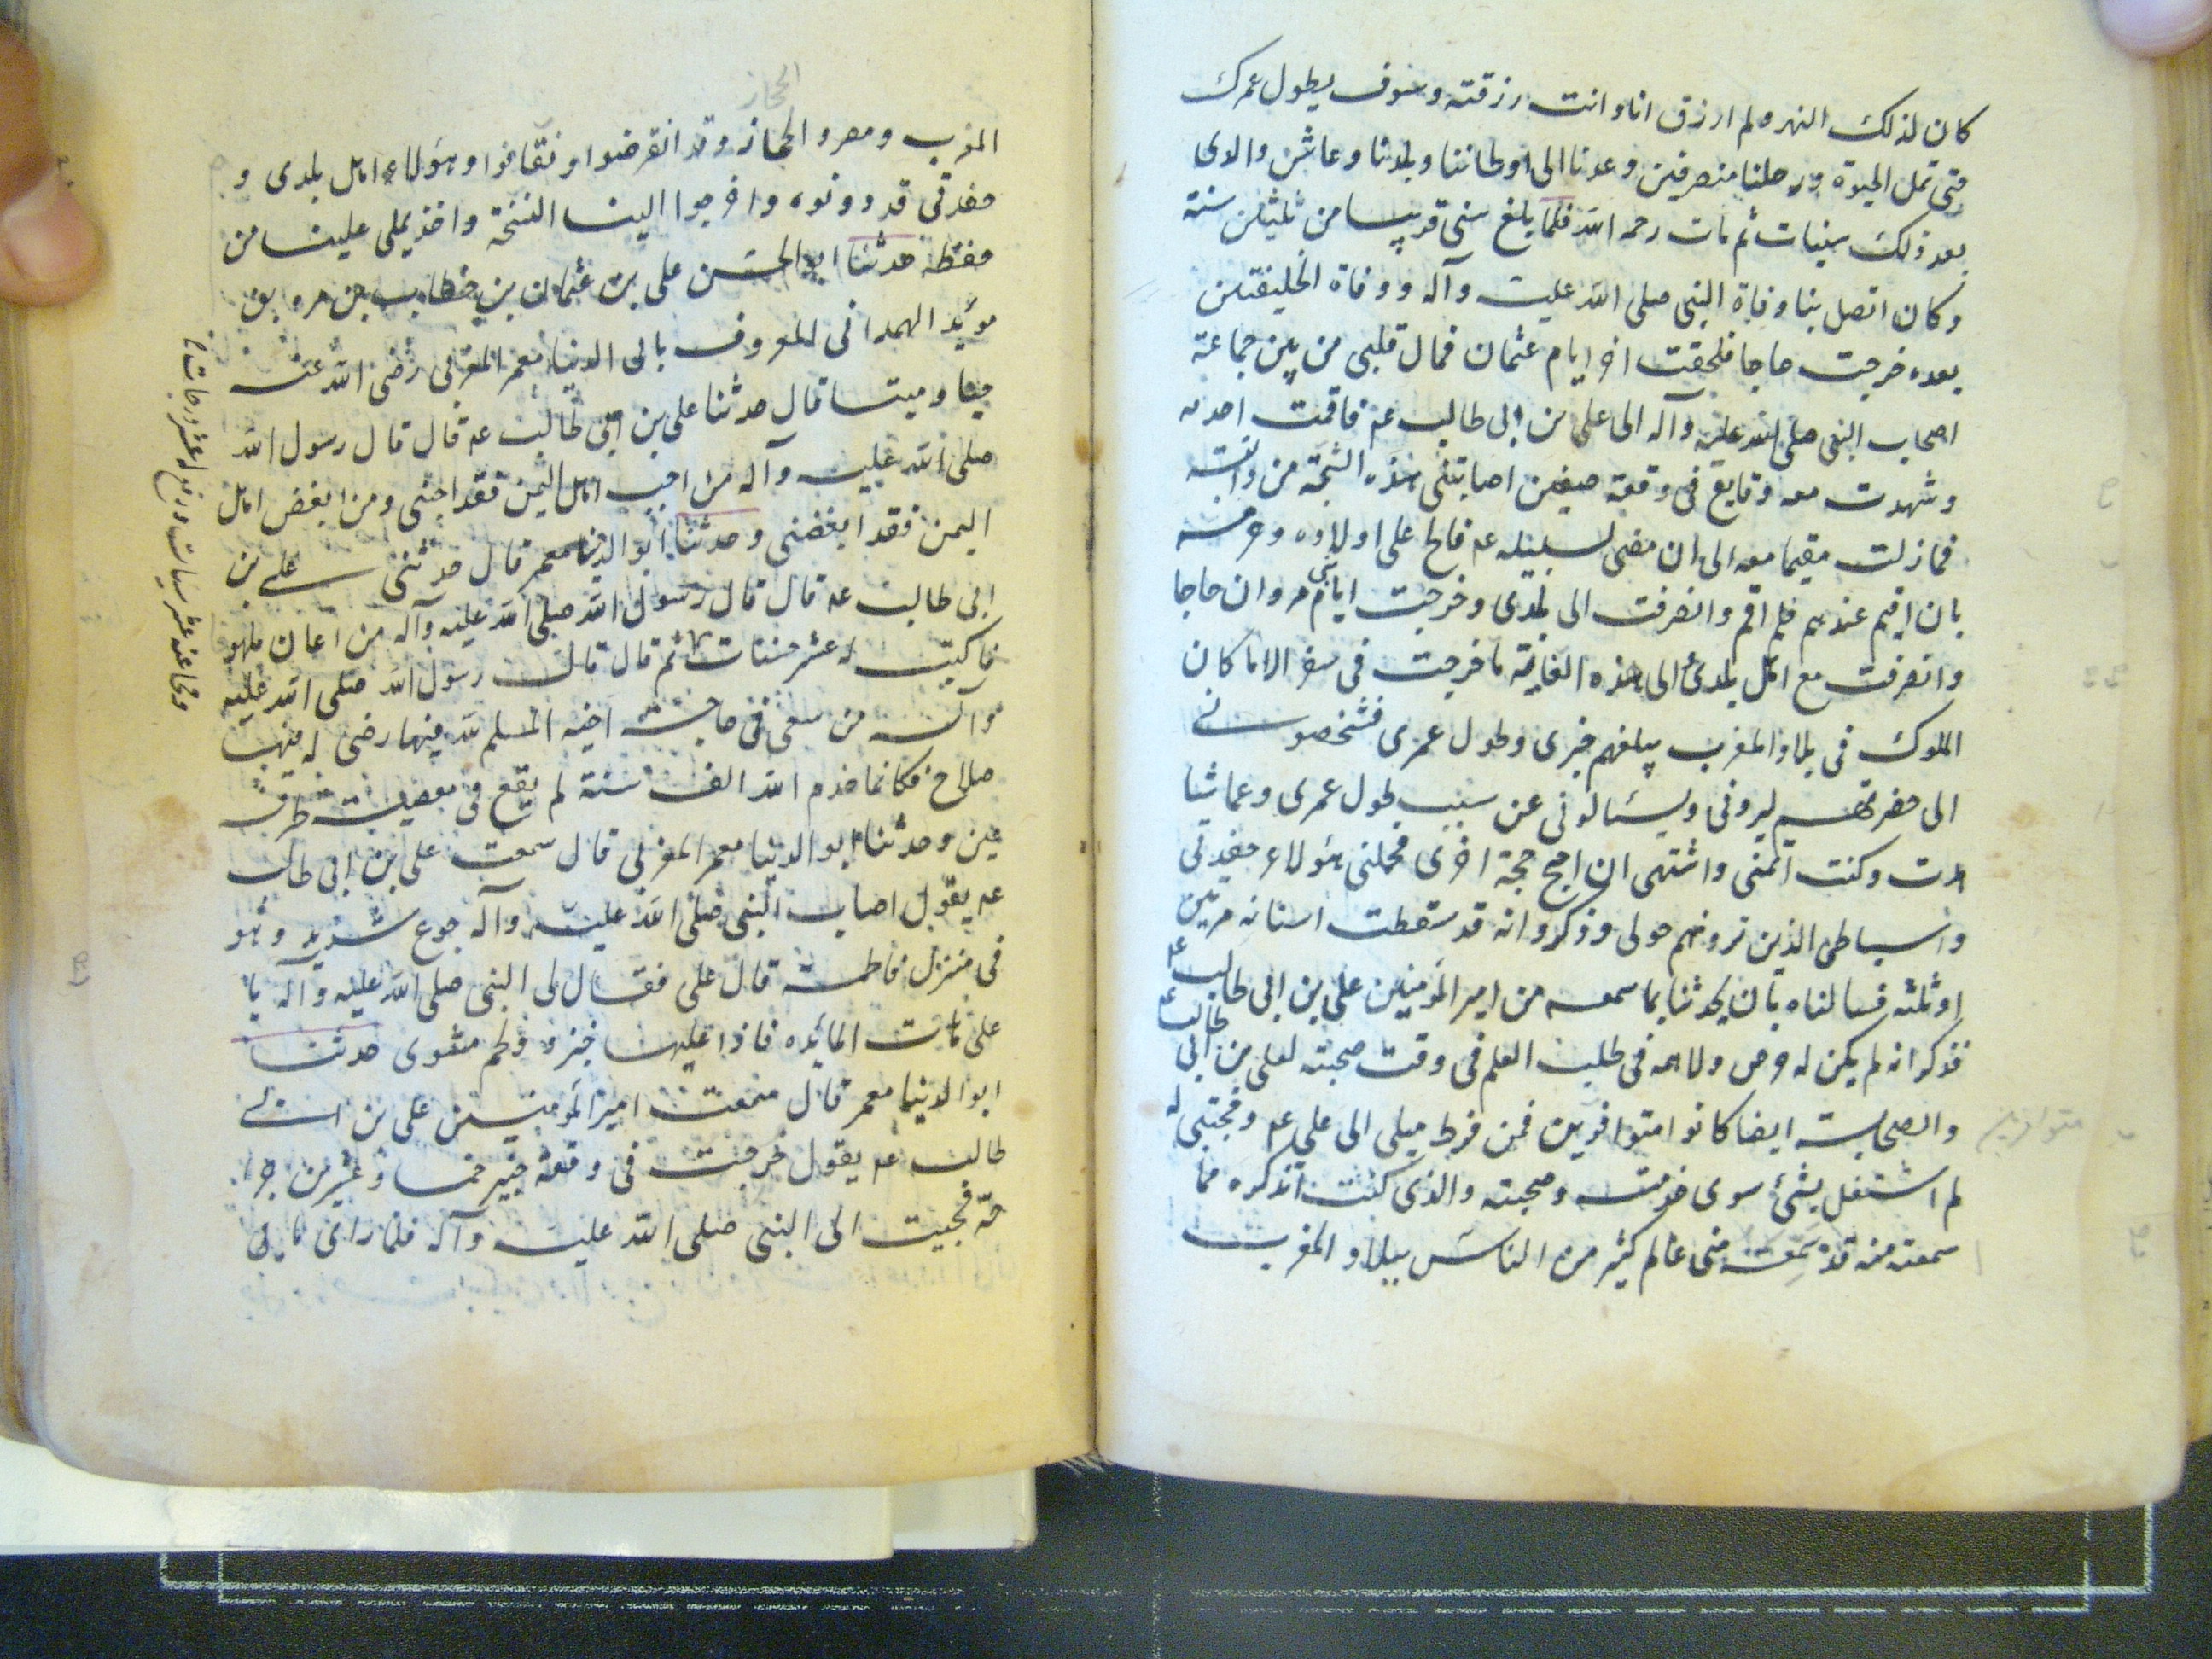 كان لذلك النهر ولم ارزق انا وانت رزقته وسوف يطول عمرك
حتى تمل الحيوة ورحلنا منصرفين وعدنا الى اوطاننا وبلدنا وعاش والدى
بعد ذلك سنيات ثم مات رحمه الله فلما بلغ سنى قريبا من ثلثين سنة
وكان اتصل بنا وفاة النبى صلى الله عليه وآله ووفاة الخليفتين
بعده خرجت حاجا فلحقت اخر ايام عثمان فمال قلبى من بين جماعة
اصحاب النبى صلى الله عليه وآله الى على بن ابى طالب عم فاقمت اخدمه
وشهدت معه وقايع فى وقعة صفين اصابتنى هذه الشجة من دابته
فما زلت مقيما معه الى ان مضى لسبيله عم فالح على اولاده وحرمه
بان اقيم عندهم فلم اقم وانصرفت الى بلدى وخرجت ايام بنى مروان حاجا
وانصرفت مع اهل بلدى الى هذه الغاية ما خرجت فى سفر الا ما كان
الملوك فى بلاد المغرب يبلغهم خبرى وطول عمرى فشخصونى
الى حضرتهم ليرونى ويسئالونى عن سبب طول عمرى وعما شا
هدت وكنت اتمنى واشتهى ان احج حجة اخرى فحملنى هؤلاء حفدتى
واسباطى الذين ترونهم حولى وذكر انه قد سقطت اسنانه مرتين
او ثلثه فسالناه بان يحدثنا بما سمعه من امير المؤمنين على بن ابى طالب عم
فذكر انه لم يكن له حرص ولا همه فى طلب العلم فى وقت صحبته لعلى بن ابى طالب عم
والصحابة ايضا كانوا متوافرين فمن فرط ميلى الى على عم ومحبتى له
لم اشتغل بشئ سوى خدمته وصحبته والذى كنت اتذكره مما
سمعته منه قد سمعته منى عالم كثير من الناس ببلاد المغرب
الحجاز
المغرب ومصر والحجاز وقد انقرضوا وتفانوا وهؤلاء اهل بلدى و
حفدتى قد دونوه واخرجوا الينا النسخة واخذ يملى علينا من
حفظه حدثنا ابو الحسن على بن عثمان بن خطاب بن مره بن
مؤيد الهمدانى المعروف بابى الدنيا معمر المغربى رضى الله عنه
حيا وميتا قال حدثنا على بن ابى طالب عم قال قال رسول الله
صلى الله عليه وآله من احب اهل اليمن فقد احبنى ومن ابغض اهل
اليمن فقد ابغضنى وحدثنا ابو الدنيا معمر قال حدثنى على بن
ابى طالب عم قال قال رسول الله صلى الله عليه وآله من اعان ملهو
فا كتب له عشر حسنات ثم قال قال رسول الله صلى الله عليه
وآله من سعى فى حاجة اخيه المسلم لله فيها رضى له فيها
صلاح فكانما خدم الله الف سنة لم يقع فى معصيته طرفة
عين وحدثنا ابو الدنيا معمر المغربى قال سمعت على بن ابى طالب
عم يقول اصاب النبى صلى الله عليه وآله جوع شديد وهو
فى منزل فاطمة قال على فقال لى النبى صلى الله عليه وآله يا
على هات المائده فاذا عليها خبز ولحم مشوى حدثنا
ابو الدنيا معمر قال سمعت امير المؤمنين على بن ابى
طالب عم يقول خرجت فى وقعة خيبر خمسا وعشرين جرا
حة فجيت الى النبى صلى الله عليه وآله فلما راى ما بى
ومحا عنه عشر سيات ورفع له عشر درجات